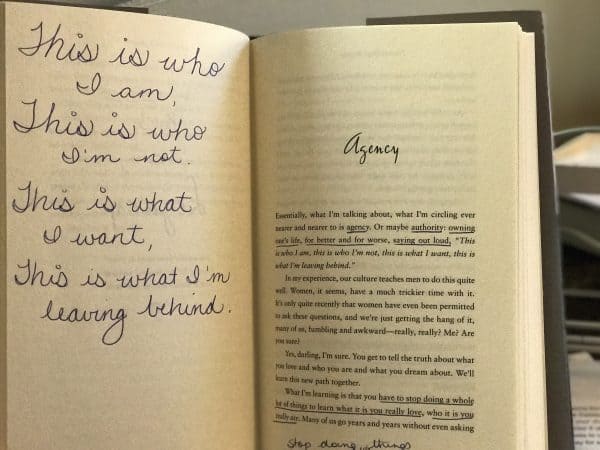 This is who
I am,
This is who
I'm not.
This is what
I want,
This is what I'm
leaving behind.
Agency
Essentially, what I'm talking about, what I'm circling ever
nearer and nearer to is agency. Or maybe authority: owning
one's life, for better and for worse, saying out loud, "This
is who I am, this is who I'm not, this is what I want, this is
what I'm leaving behind."
In my experience, our culture teaches men to do this quite
well. Women, it seems, have a much trickier time with it.
It's only quite recently that women have even been permitted
to ask these questions, and we're just getting the hang of it,
many of us, fumbling and awkward—really, really? Me? Are
you sure?
Yes, darling, I'm sure. You get to tell the truth about what
you love and who you are and what you dream about. We'll
learn this new path together.
What I'm learning is that you have to stop doing a whole
lot of things to learn what it is you really love, who it is you
really are. Many of us go years and years without even asking
stop doing things